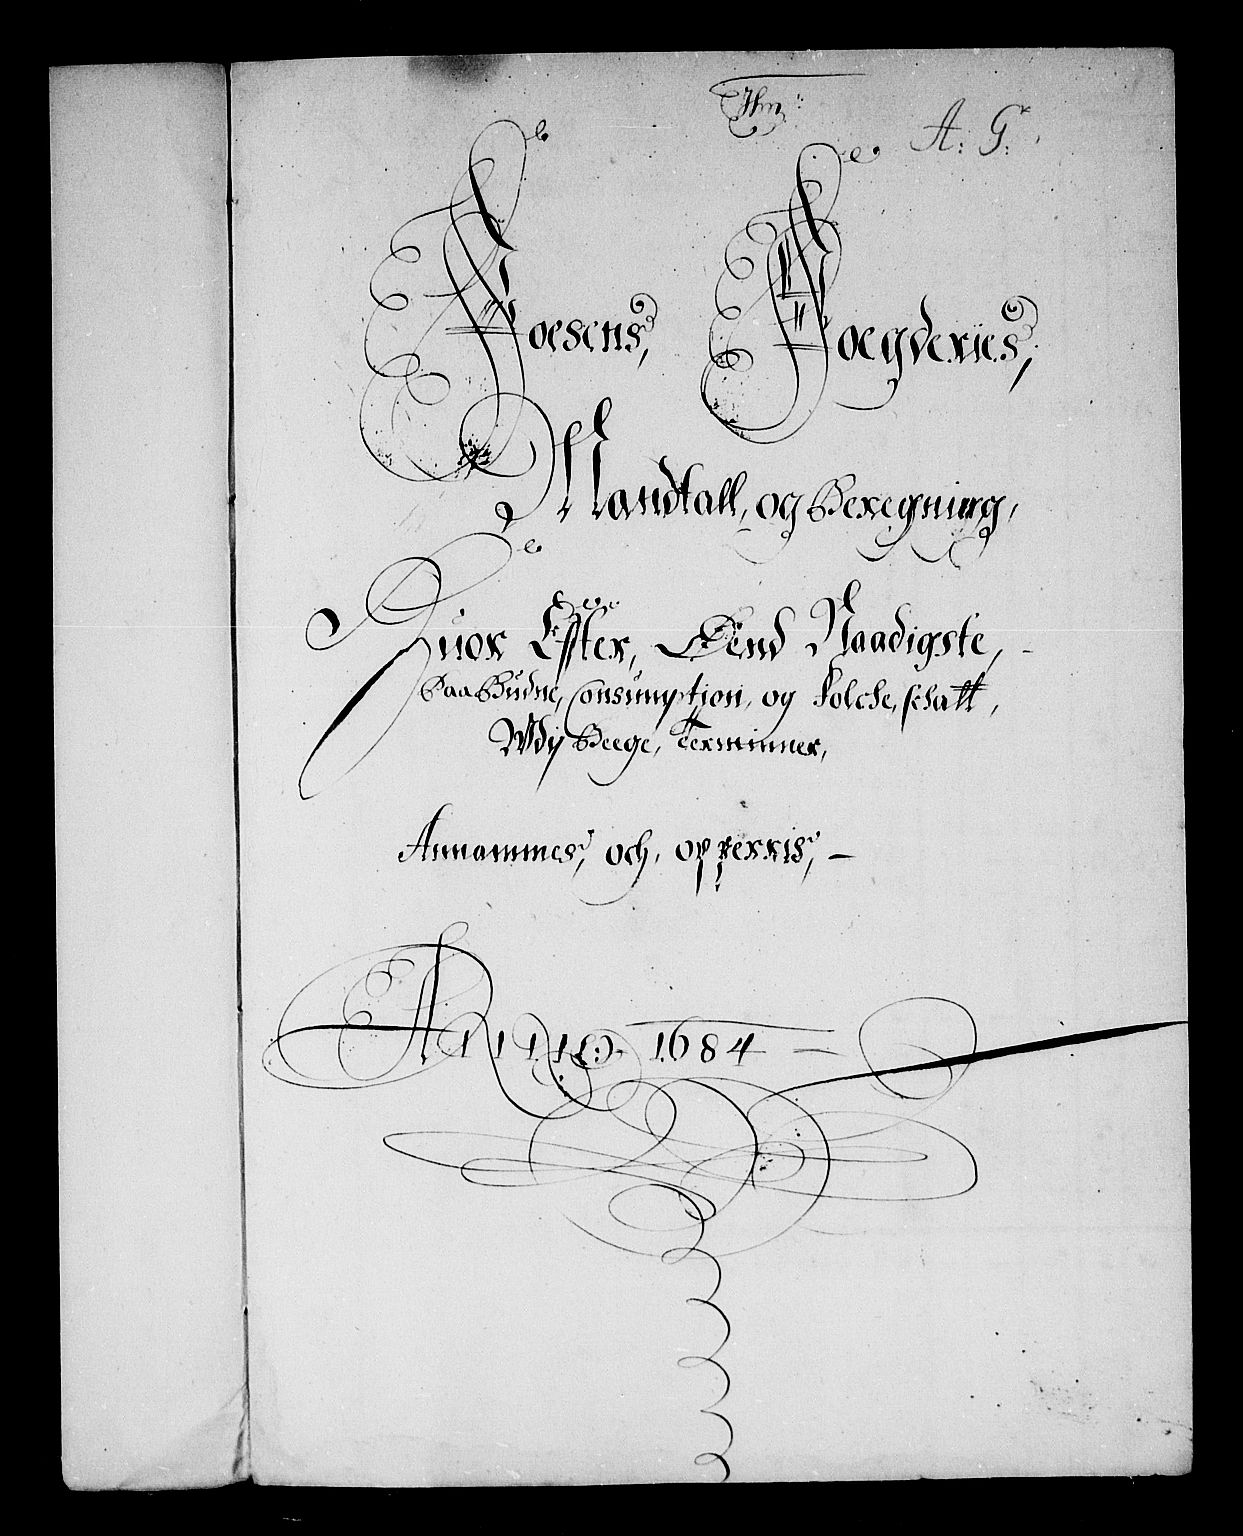 A: G:
Foesens, Foegderies,
Mandtall, og Beregning,
Huor Efter, Dend Naadigste,
Paa Budne, Consumption, og Folche, schatt,
Wdj Beege, Terminner,
Annammes, och, opperris, —
Anno. 1684 —